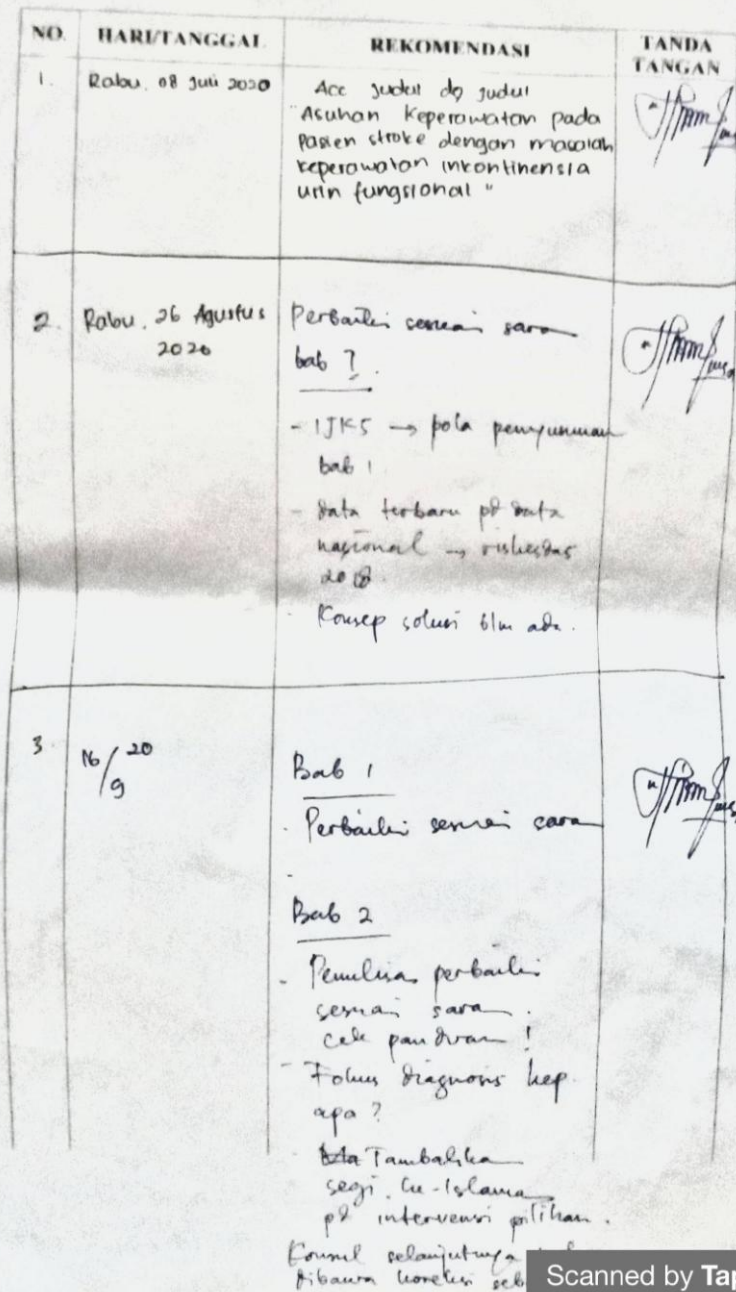 NO. HARI/TANGGAL REKOMENDASI TANDA TANGAN
1. Rabu, 08 Juli 2020
Acc judul dg judul
"Asuhan Keperawatan pada
pasien stroke dengan masalah
keperawatan inkontinensia
urin fungsional"
2. Rabu, 26 Agustus
2020
Perbaiki sesuai saran
bab
- IJKS → pola penyusunan
bab 1
- data terbaru pd data
nasional → riskesdas
2018
Konsep solusi blm ada.
3 16/9 20
Bab 1
- Perbaiki sesuai saran
-
Bab 2
- Penulisan perbaiki
sesuai saran.
cek panduan!
- Fokus diagnosis kep
apa?
- Tambahkan
segi ke-Islaman
pd intervensi pilihan.
Konsul selanjutnya
dibawa koreksi seb
Scanned by Tap